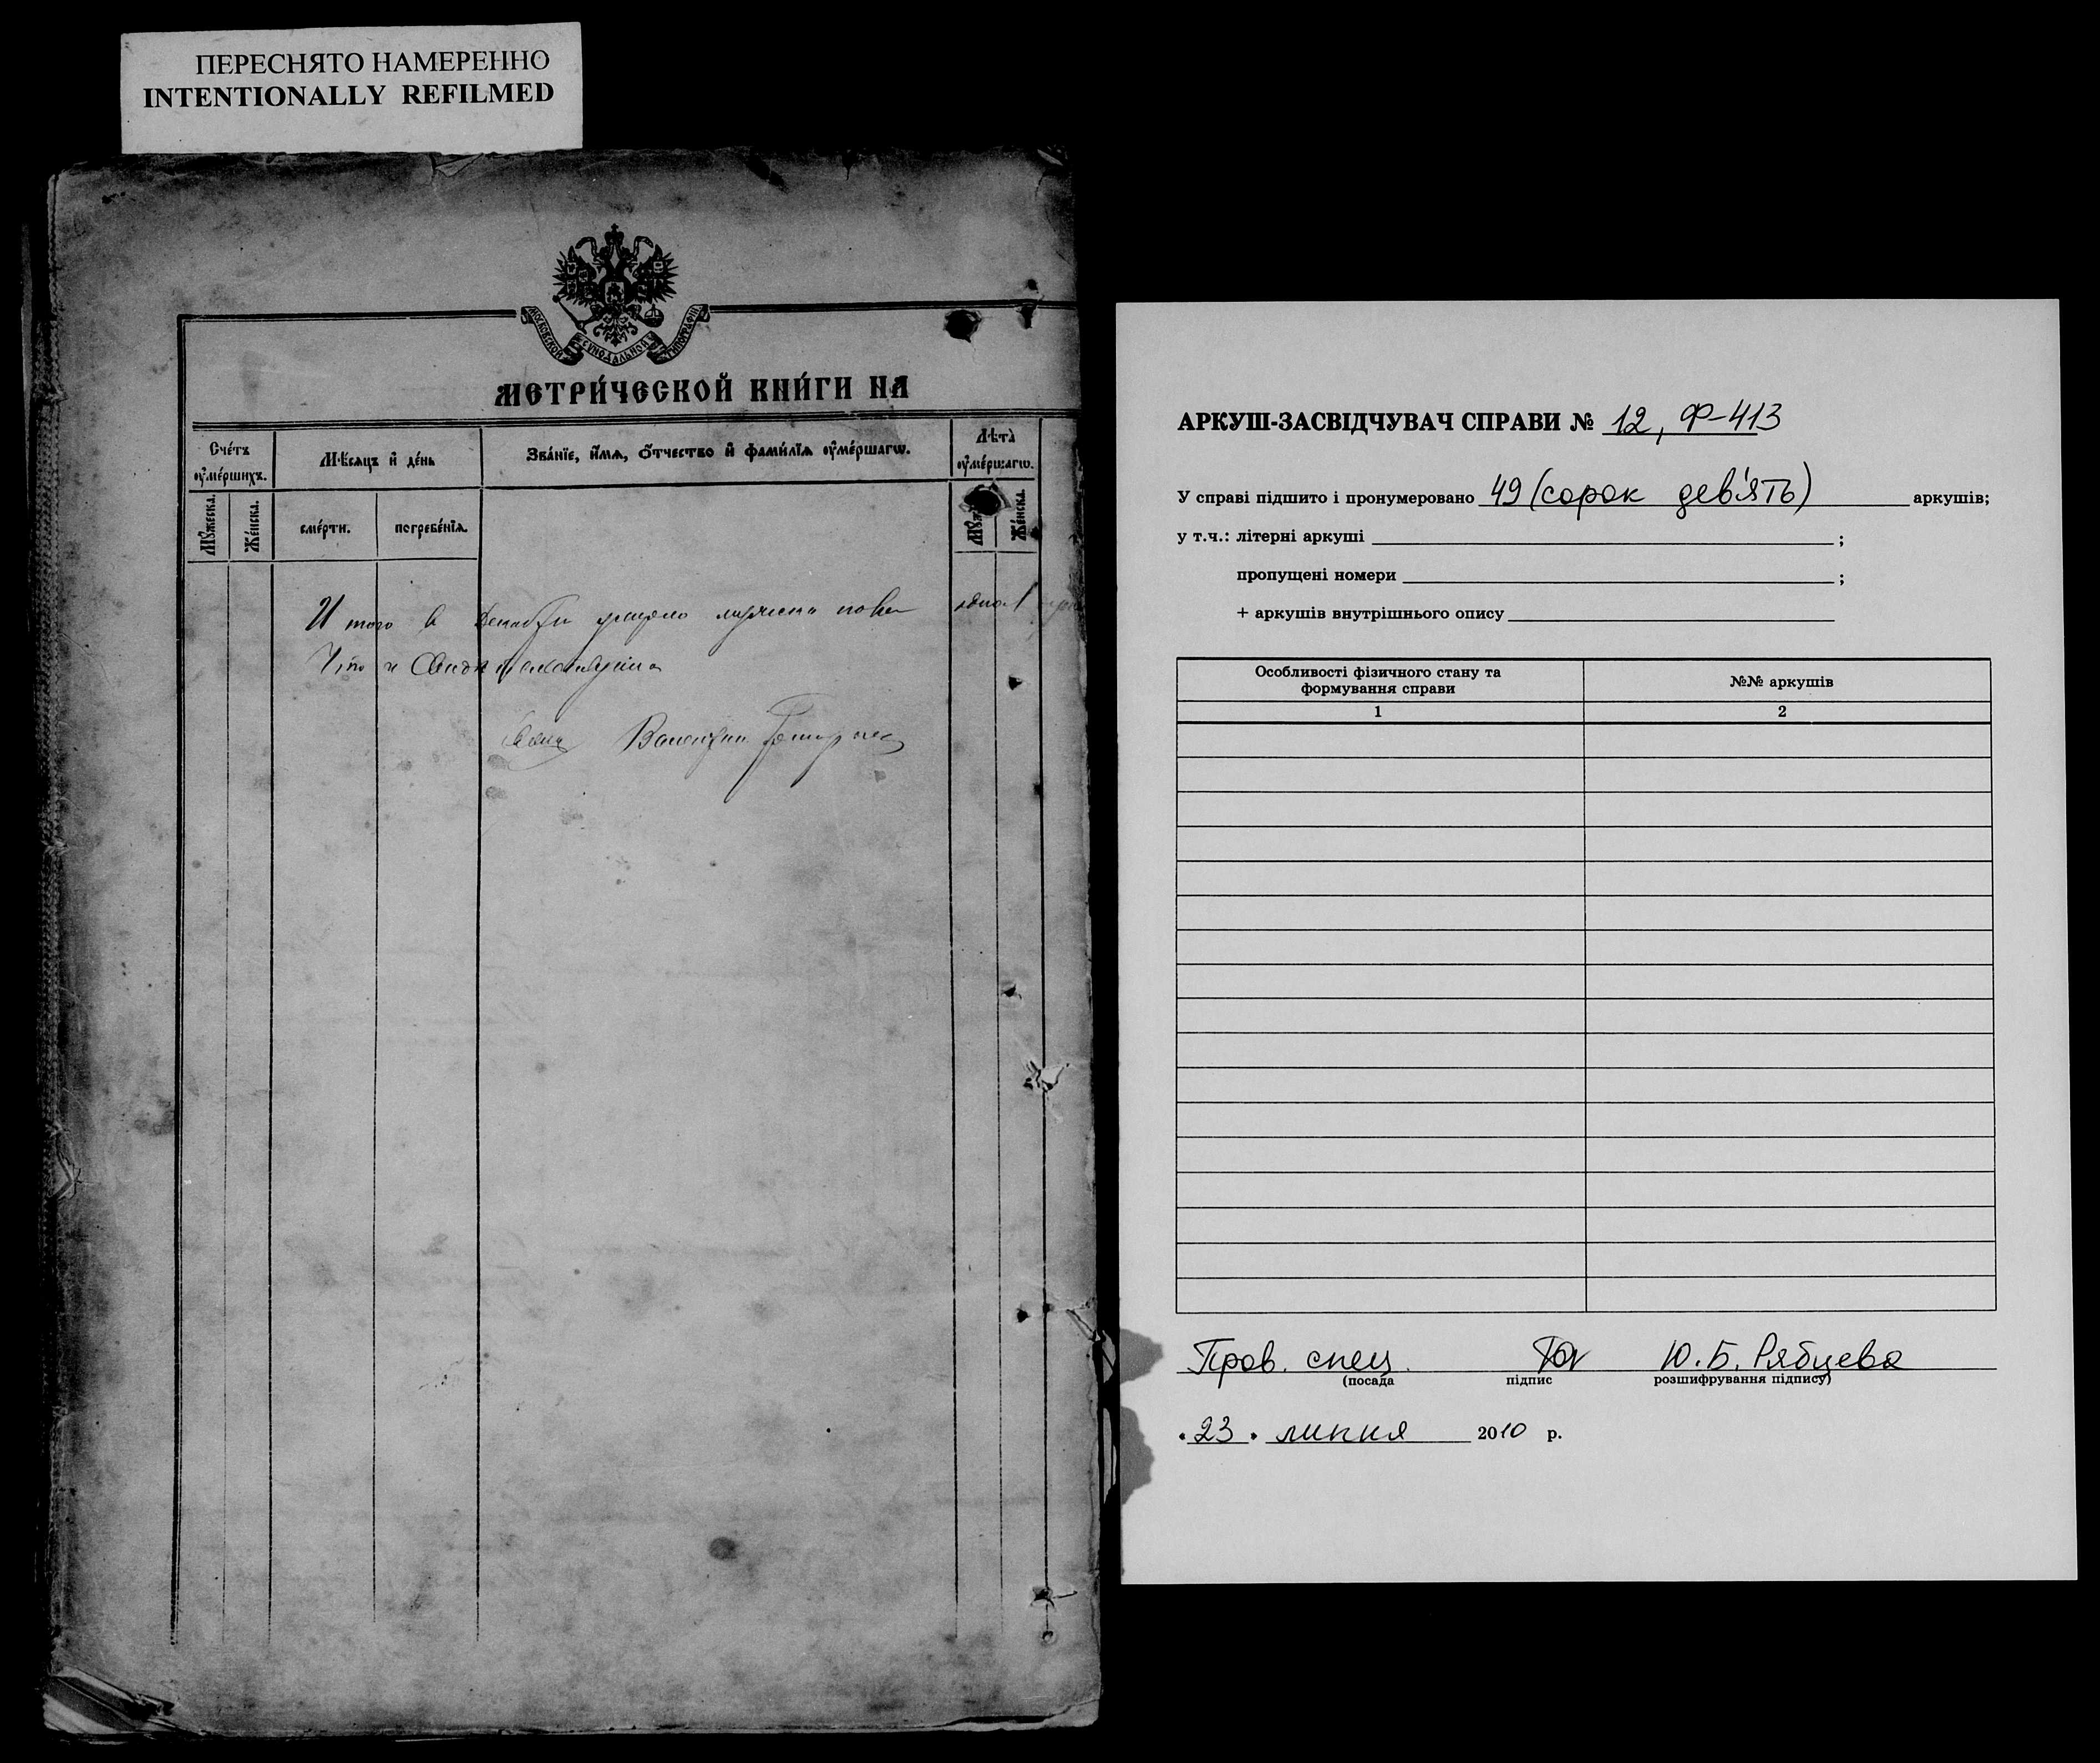 ПЕРЕСНЯТО НАМЕРЕННО
INTENTIONALLY REFILMED
МОСКОВСКОЙ СѴНОДАЛЬНОЙ ТИПОГРАФІИ
МЕТРИ́ЧЕСКОЙ КНИ́ГИ НА
Сче́тъ ᲂу҆ме́ршихъ.
Мѣ́сѧцъ и҆ де́нь
Зва́нїе, и҆́мѧ, ѻ҆́тчество и҆ фами́лїѧ ᲂу҆ме́ршагѡ.
Лѣ́та ᲂу҆ме́ршагѡ.
Мꙋ́жеска.
Же́нска.
сме́рти.
погребе́нїѧ.
Же́нска.
И того в
Валентин
АРКУШ-ЗАСВІДЧУВАЧ СПРАВИ № 12, Ф-413
У справі підшито і пронумеровано 49 (сорок дев'ять) аркушів;
у т.ч.: літерні аркуші ;
пропущені номери ;
+ аркушів внутрішнього опису
Особливості фізичного стану та
формування справи
№№ аркушів
1 2
Пров. спец. Ю. Б. Рябцева
(посада підпис розшифрування підпису)
"23" липня 2010 р.